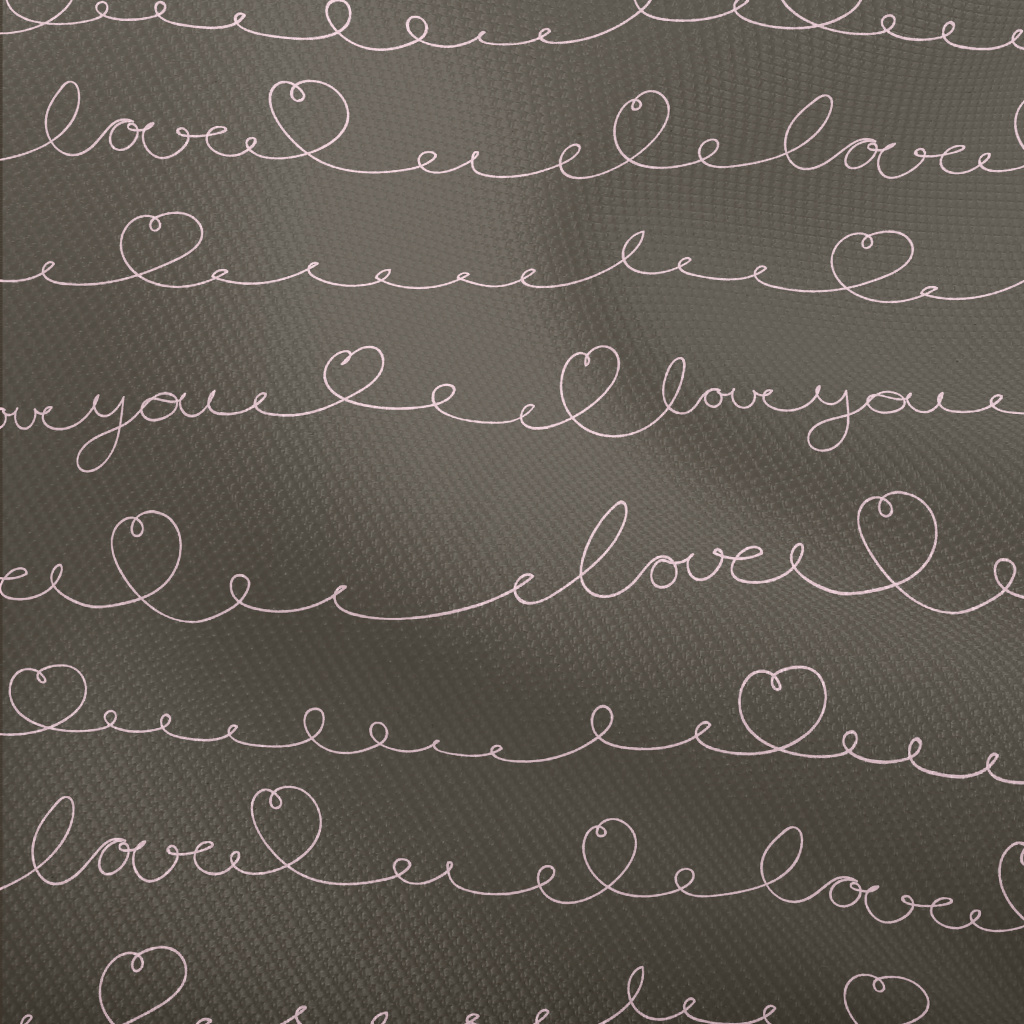 love love
ove you love you
love
love love